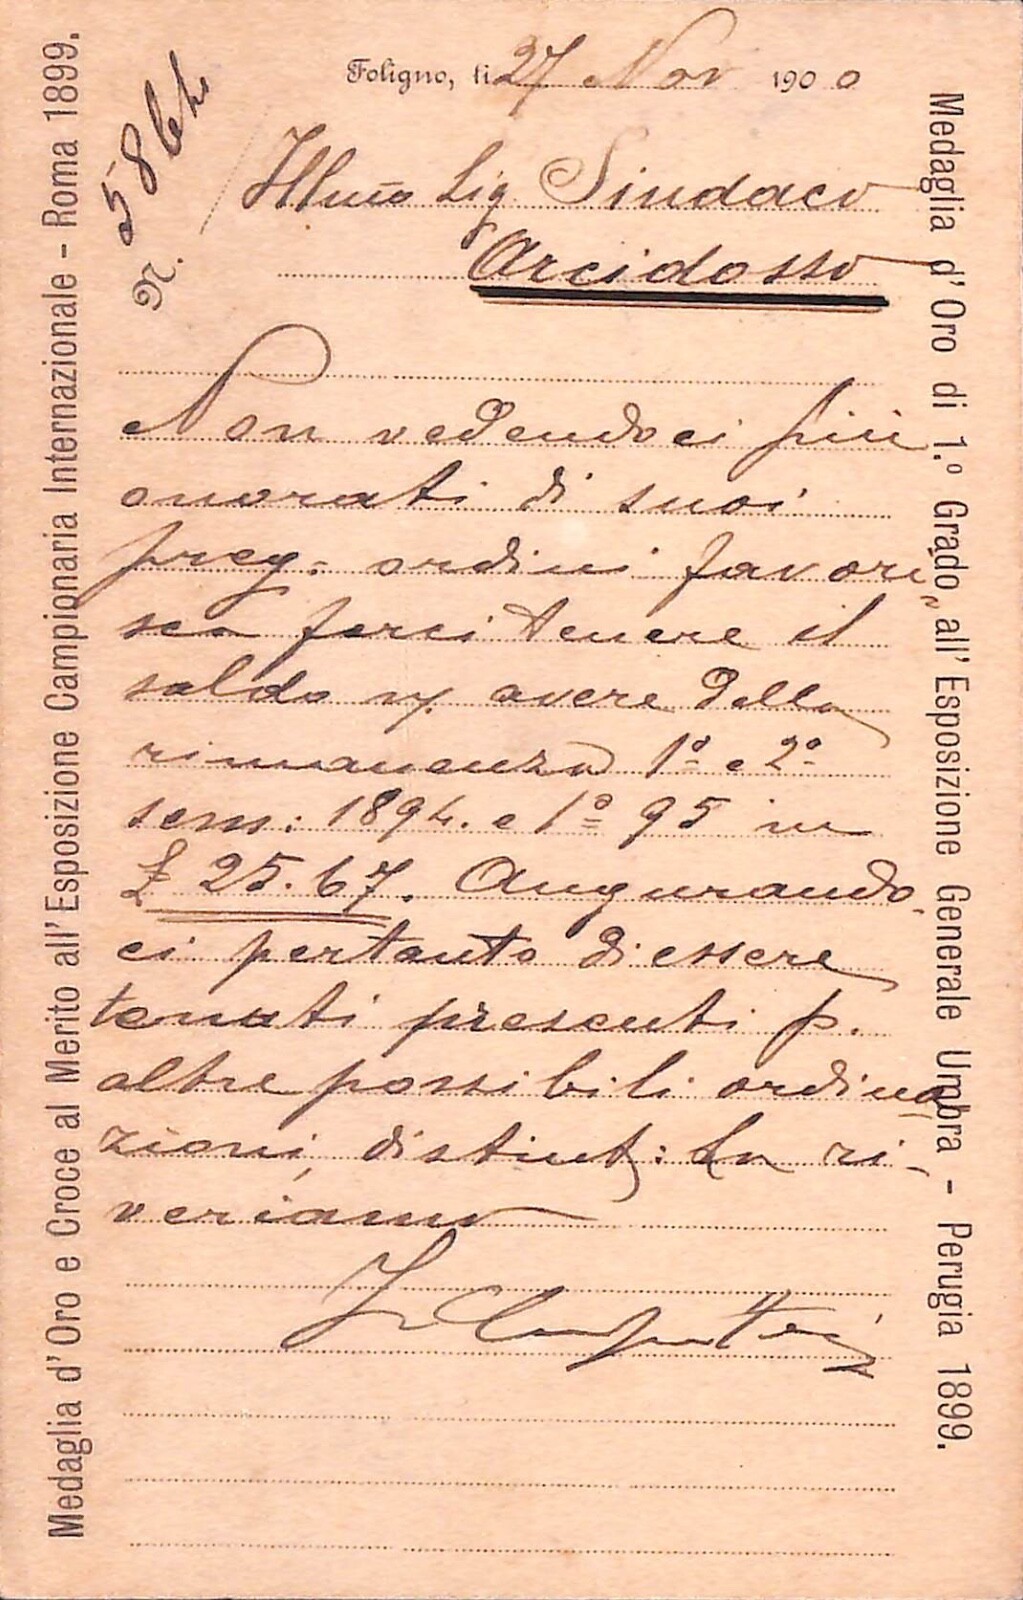 Foligno, li 27 Nov 1900
N. 2586
Illmo Sig Sindaco
Arcidosso
Non vedendoci più
onorati di suoi
preg: ordini favori
sca farci tenere il
saldo n/ avere della
rimanenza 1º e 2º
sem: 1894. e 1º 95 in
£ 25.67. Augurando
ci pertanto di essere
tenuti presenti p.
altre possibili ordina
zioni distint: La ri-
veriamo
Medaglia d'Oro e Croce al Merito all'Esposizione Campionaria Internazionale - Roma 1899.
Medaglia d'Oro di 1.º Grado all'Esposizione Generale Umbra - Perugia 1899.